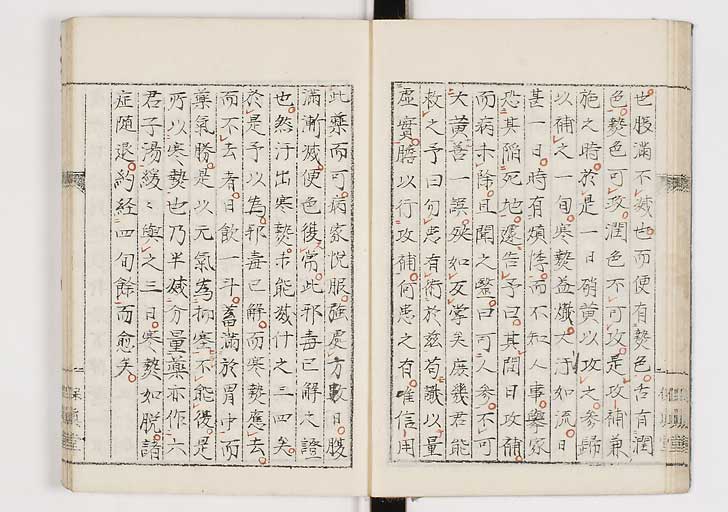 也腹滿不減也而便有熱色舌有潤
色熱色可攻潤色不可攻是攻補兼
施之時於是一日硝黃以攻之參歸
以補之一旬寒熱益熾大汗如流日
甚一日時有煩悸而不知人事擧家
恐其陷死地還告予曰其聞日攻補
而病未除且聞之醫曰可人參不可
大黃善一誤殃如反掌矣庶幾君能
救之予曰勿患有術於玆苟識以量
虛實膽以行攻補何患之有唯信用
此藥而可病家悅服強處方數日腹
滿漸減便色復常此邪毒已解之證
也然汗出寒熱未能減什之三四矣
於是予以爲邪毒已解而寒熱應去
而不去者日飮一斗蓄滿於胃中而
藥氣勝是以元氣爲抑塞不能復是
所以寒熱也乃半減分量藥亦作六
君子湯緩〻與之三日寒熱如脫諸
症隨退約經四旬餘而愈矣